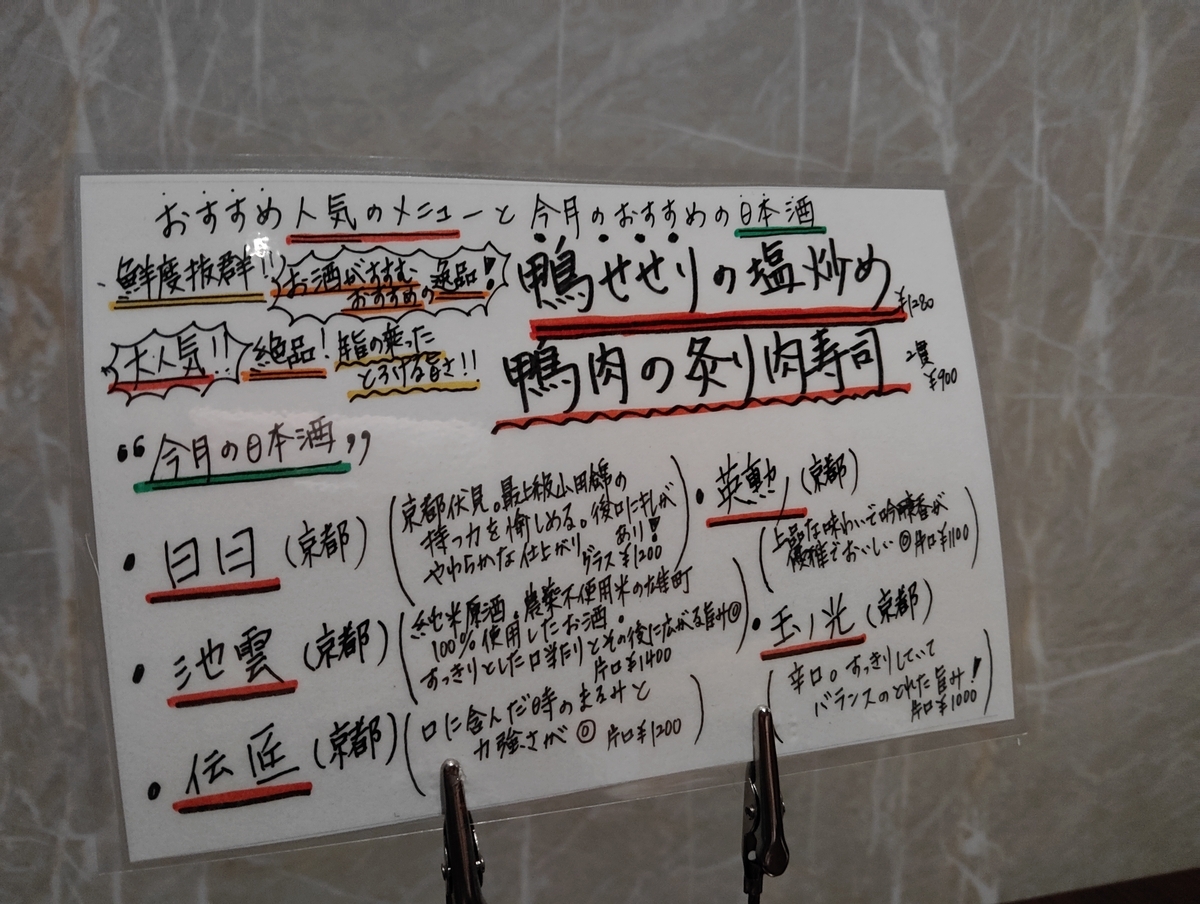 おすすめ人気のメニューと今月のおすすめの日本酒
鮮度抜群!!
お酒がすすむ
おすすめの逸品!
鴨せせりの塩炒め
¥1280
大人気!!
絶品!
脂の乗った
とろける旨さ!!
鴨肉の炙り肉寿司
2貫
¥900
“今月の日本酒”
・日日(京都)
(京都伏見。最上級山田錦の
持つ力を愉しめる。後口にキレが
あり!
やわらかな仕上がり グラス¥1200)
・池雲(京都)
(純米原酒。農薬不使用米の雄町
100%使用したお酒。
すっきりとした口当たりとその後に広がる旨み◎
片口¥1400)
・伝匠(京都)
(口に含んだ時のまるみと
力強さが◎ 片口¥1200)
・英勲(京都)
(上品な味わいで吟醸香が
優雅でおいしい◎片口¥1100)
・玉ノ光(京都)
(辛口。すっきりしていて
バランスのとれた旨み!
片口¥1000)